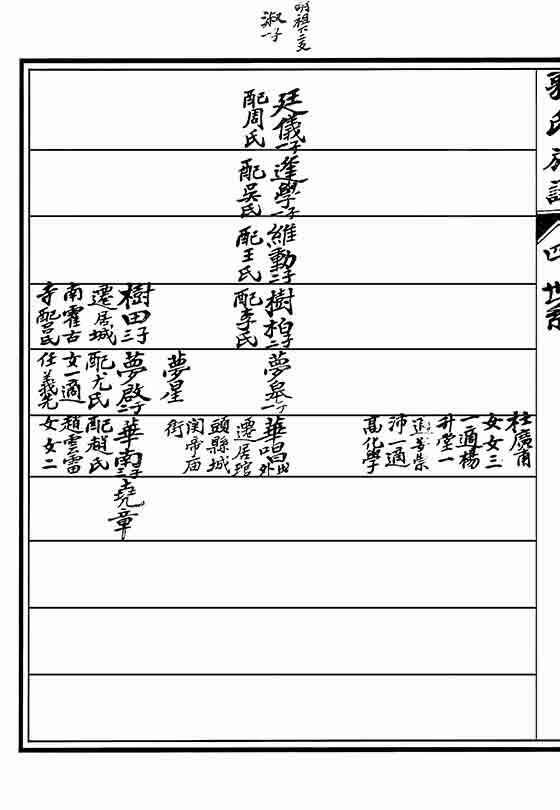 明祖下三支
淑一子
郭氏族譜
四
世系
廷儀一子
配周氏
逢學一子
配吳氏
維動二子
配王氏
樹柏二子
配李氏
樹田三子
遷居城
南霍古
寺配呂氏
夢皋一子
夢星
夢啟二子
配尤氏
女一適
任義先
杜廣甫
女女三
一適楊
升堂一
適苦崇
沛一適
高化學
華唱出外
遷居琯
頭縣城
関帝庙
街
華南一子
配趙氏
趙雲雷
女女二
堯章